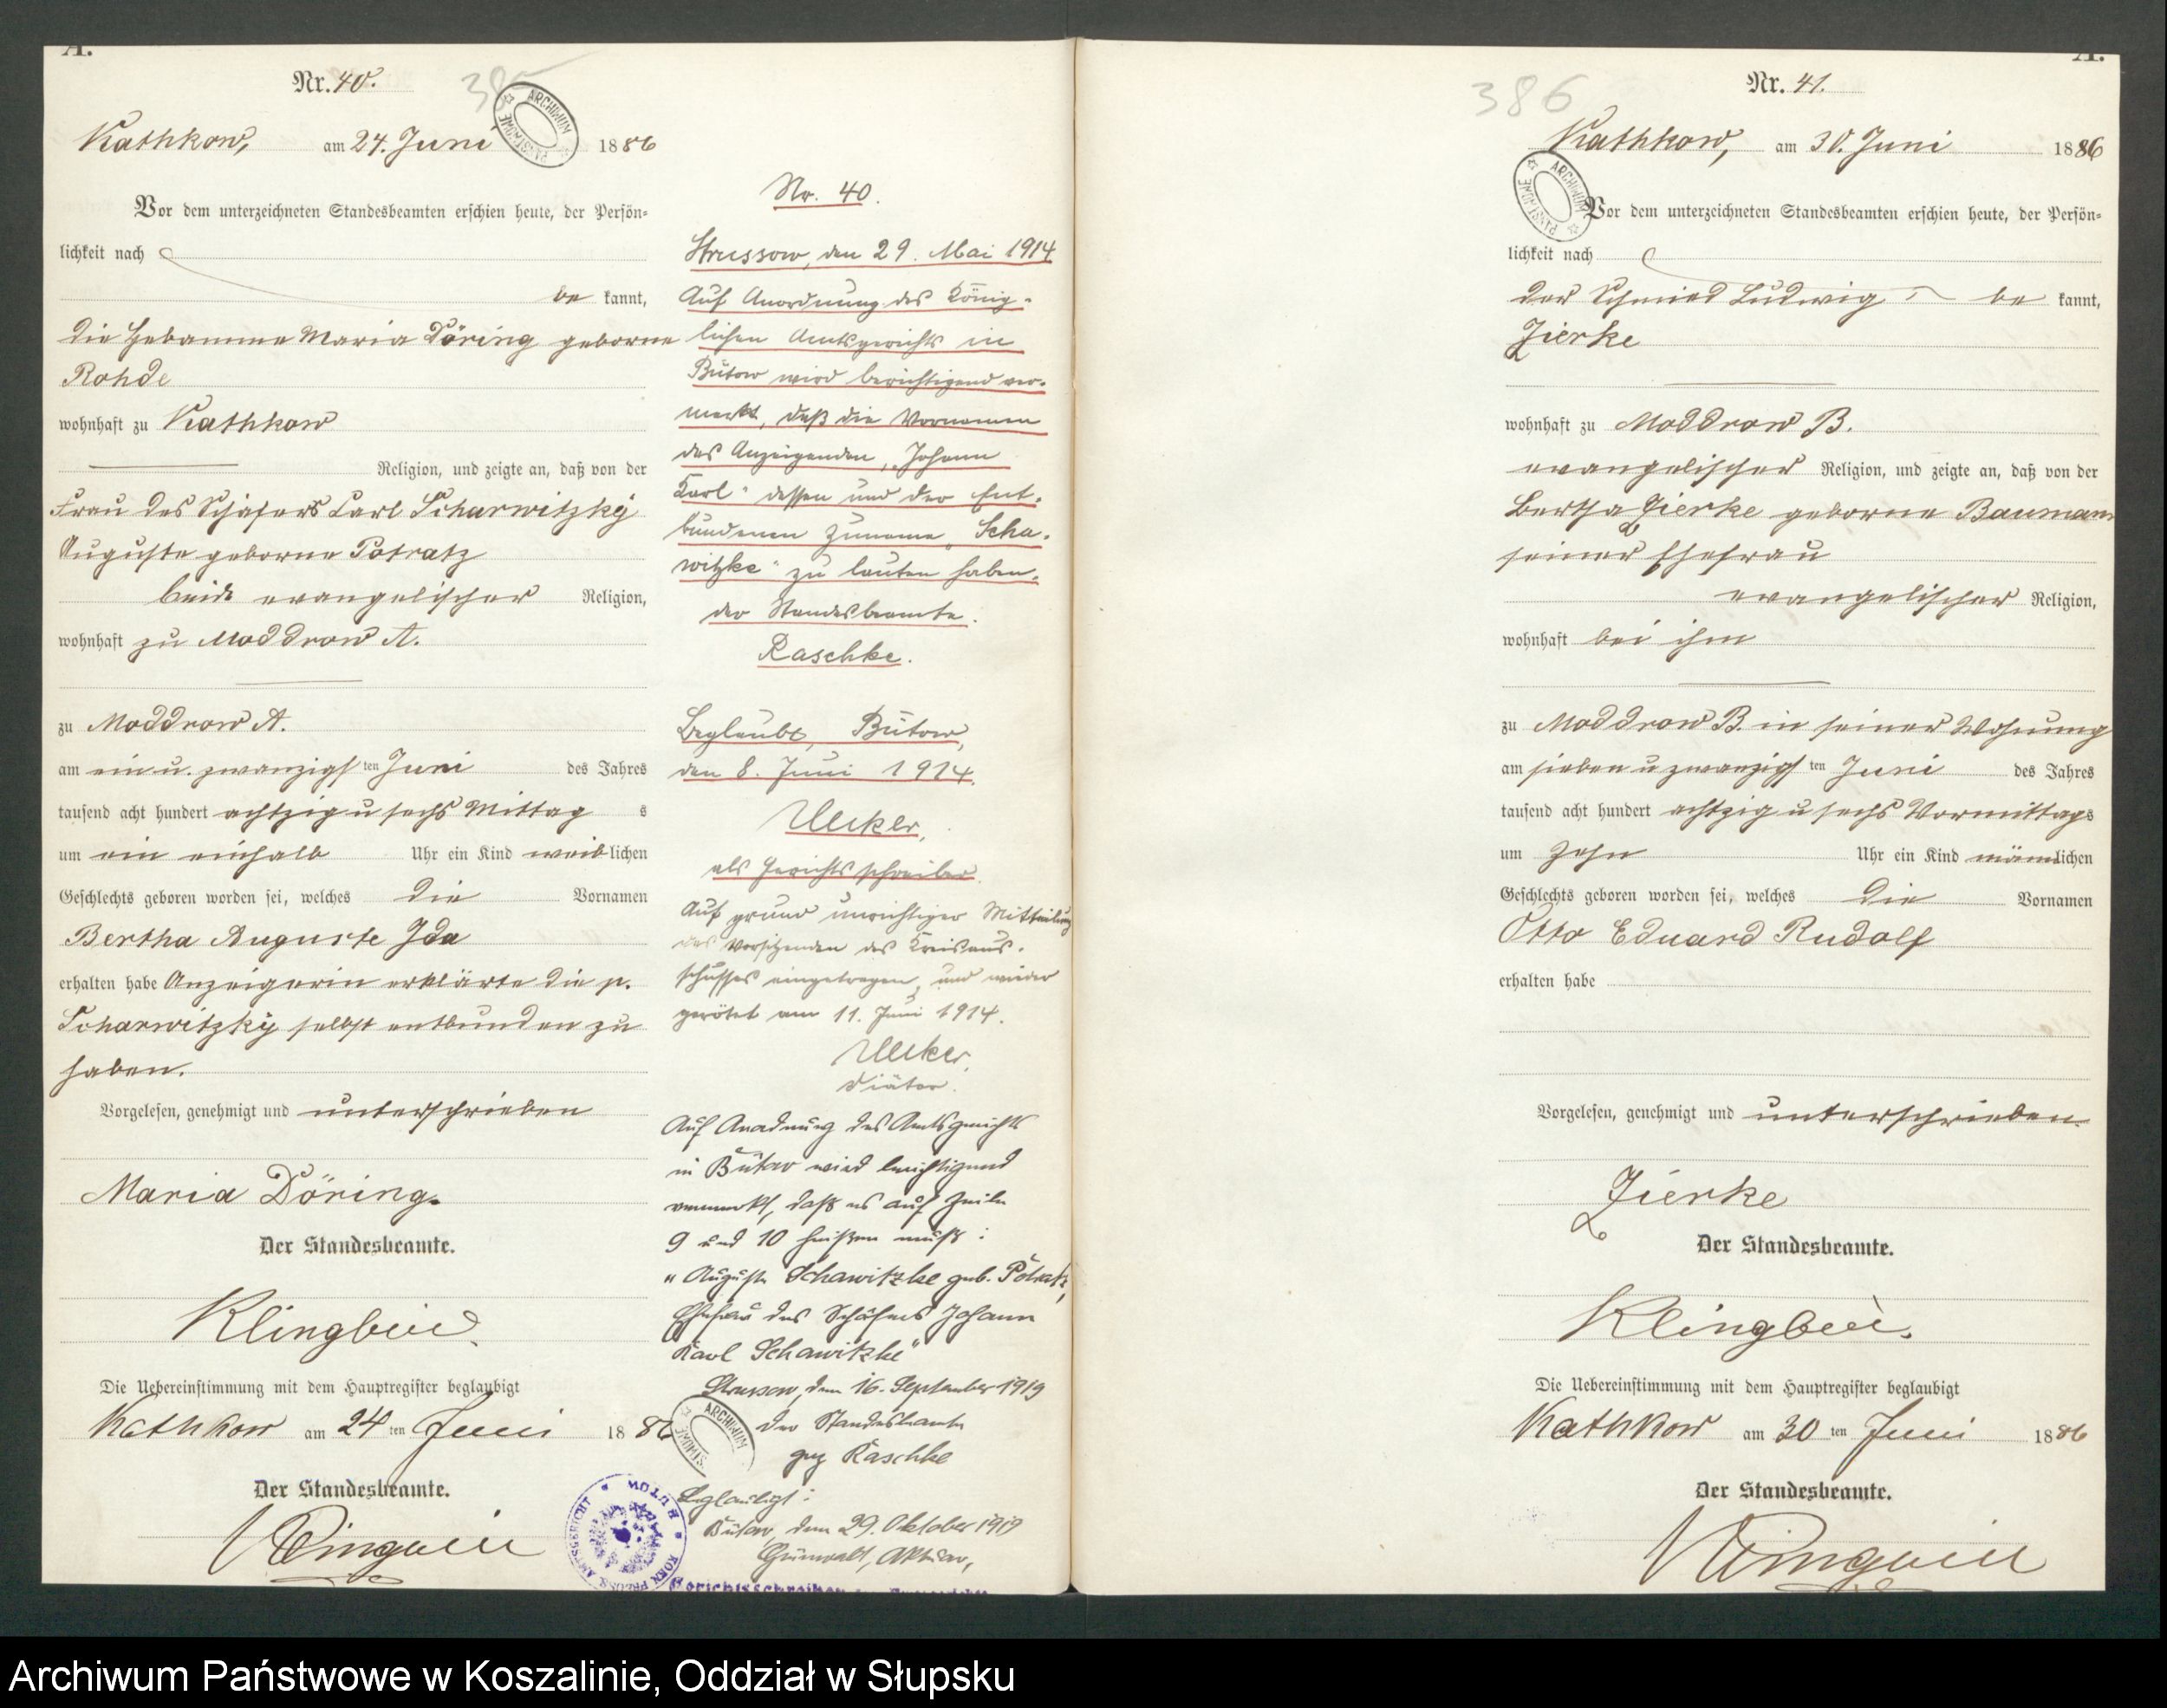 A.
Nr. 40.
385
ARCHIWUM PAŃSTWOWE
Kathkow, am 24. Juni 1886
Vor dem unterzeichneten Standesbeamten erschien heute, der Persön-
lichkeit nach
be kannt,
die Hebamme Maria Döring geborne
Rohde
wohnhaft zu Kathkow
Religion, und zeigte an, daß von der
Frau des Schäfers Carl Scharwitzky
Auguste geborne Potratz
beide evangelischer Religion,
wohnhaft zu Moddrow A.
zu Moddrow A.
am ein u. zwanzigsten Juni des Jahres
tausend acht hundert achtzig u sechs Mittags
um ein einhalb Uhr ein Kind weiblichen
Geschlechts geboren worden sei, welches die Vornamen
Bertha Auguste Ida
erhalten habe Anzeigerin erklärte die p.
Scharwitzky selbst entbunden zu
haben.
Vorgelesen, genehmigt und unterschrieben
Maria Döring.
Der Standesbeamte.
Klingbeil.
Die Uebereinstimmung mit dem Hauptregister beglaubigt
Kathkow am 24 ten Juni 1886
Der Standesbeamte.
Klingbeil
Nr. 40.
Strussow, den 29. Mai 1914
Auf Anordnung des König-
lichen Amtsgerichts in
Bütow wird berichtigend ver-
merkt, daß die Vornamen
des Anzeigenden „Johann
Karl" dessen und der Ent-
bundenen Zuname „Scha-
witzke" zu lauten haben.
der Standesbeamte.
Raschke.
Beglaubt, Bütow,
den 8. Juni 1914.
Uecker,
als Gerichtsschreiber.
Auf grund unrichtiger Mitteilung
des Vorsitzenden des Kreisaus-
schusses eingetragen, und wieder
gerötet am 11. Juni 1914.
Uecker,
Diätar.
Auf Anordnung des Amtsgerichts
in Bütow wird berichtigend
vermerkt, daß es auf Zeile
9 und 10 heißen muß:
„Auguste Schawitzke geb. Potratz,
Ehefrau des Schäfers Johann
Karl Schawitzke"
Strussow, den 16. September 1919
der Standesbeamte
gez Raschke
ARCHIWUM
Beglaubigt:
Bütow, den 29. Oktober 1919
Grünwald, Aktuar,
KÖN. PREUSS. AMTSGERICHT * BÜTOW *
Gerichtsschreiber
A.
Nr. 41.
386
Kathkow, am 30. Juni 1886
ARCHIWUM PAŃSTWOWE
Vor dem unterzeichneten Standesbeamten erschien heute, der Persön-
lichkeit nach
der Schmied Ludwig be kannt,
Zierke
wohnhaft zu Moddrow B.
evangelischer Religion, und zeigte an, daß von der
Bertha Zierke geborne Baumann
seiner Ehefrau
evangelischer Religion,
wohnhaft bei ihm
zu Moddrow B. in seiner Wohnung
am sieben u zwanzigsten Juni des Jahres
tausend acht hundert achtzig u sechs Vormittags
um zehn Uhr ein Kind männlichen
Geschlechts geboren worden sei, welches die Vornamen
Otto Eduard Rudolf
erhalten habe
Vorgelesen, genehmigt und unterschrieben.
Zierke
Der Standesbeamte.
Klingbeil.
Die Uebereinstimmung mit dem Hauptregister beglaubigt
Kathkow am 30 ten Juni 1886
Der Standesbeamte.
Klingbeil
Archiwum Państwowe w Koszalinie, Oddział w Słupsku